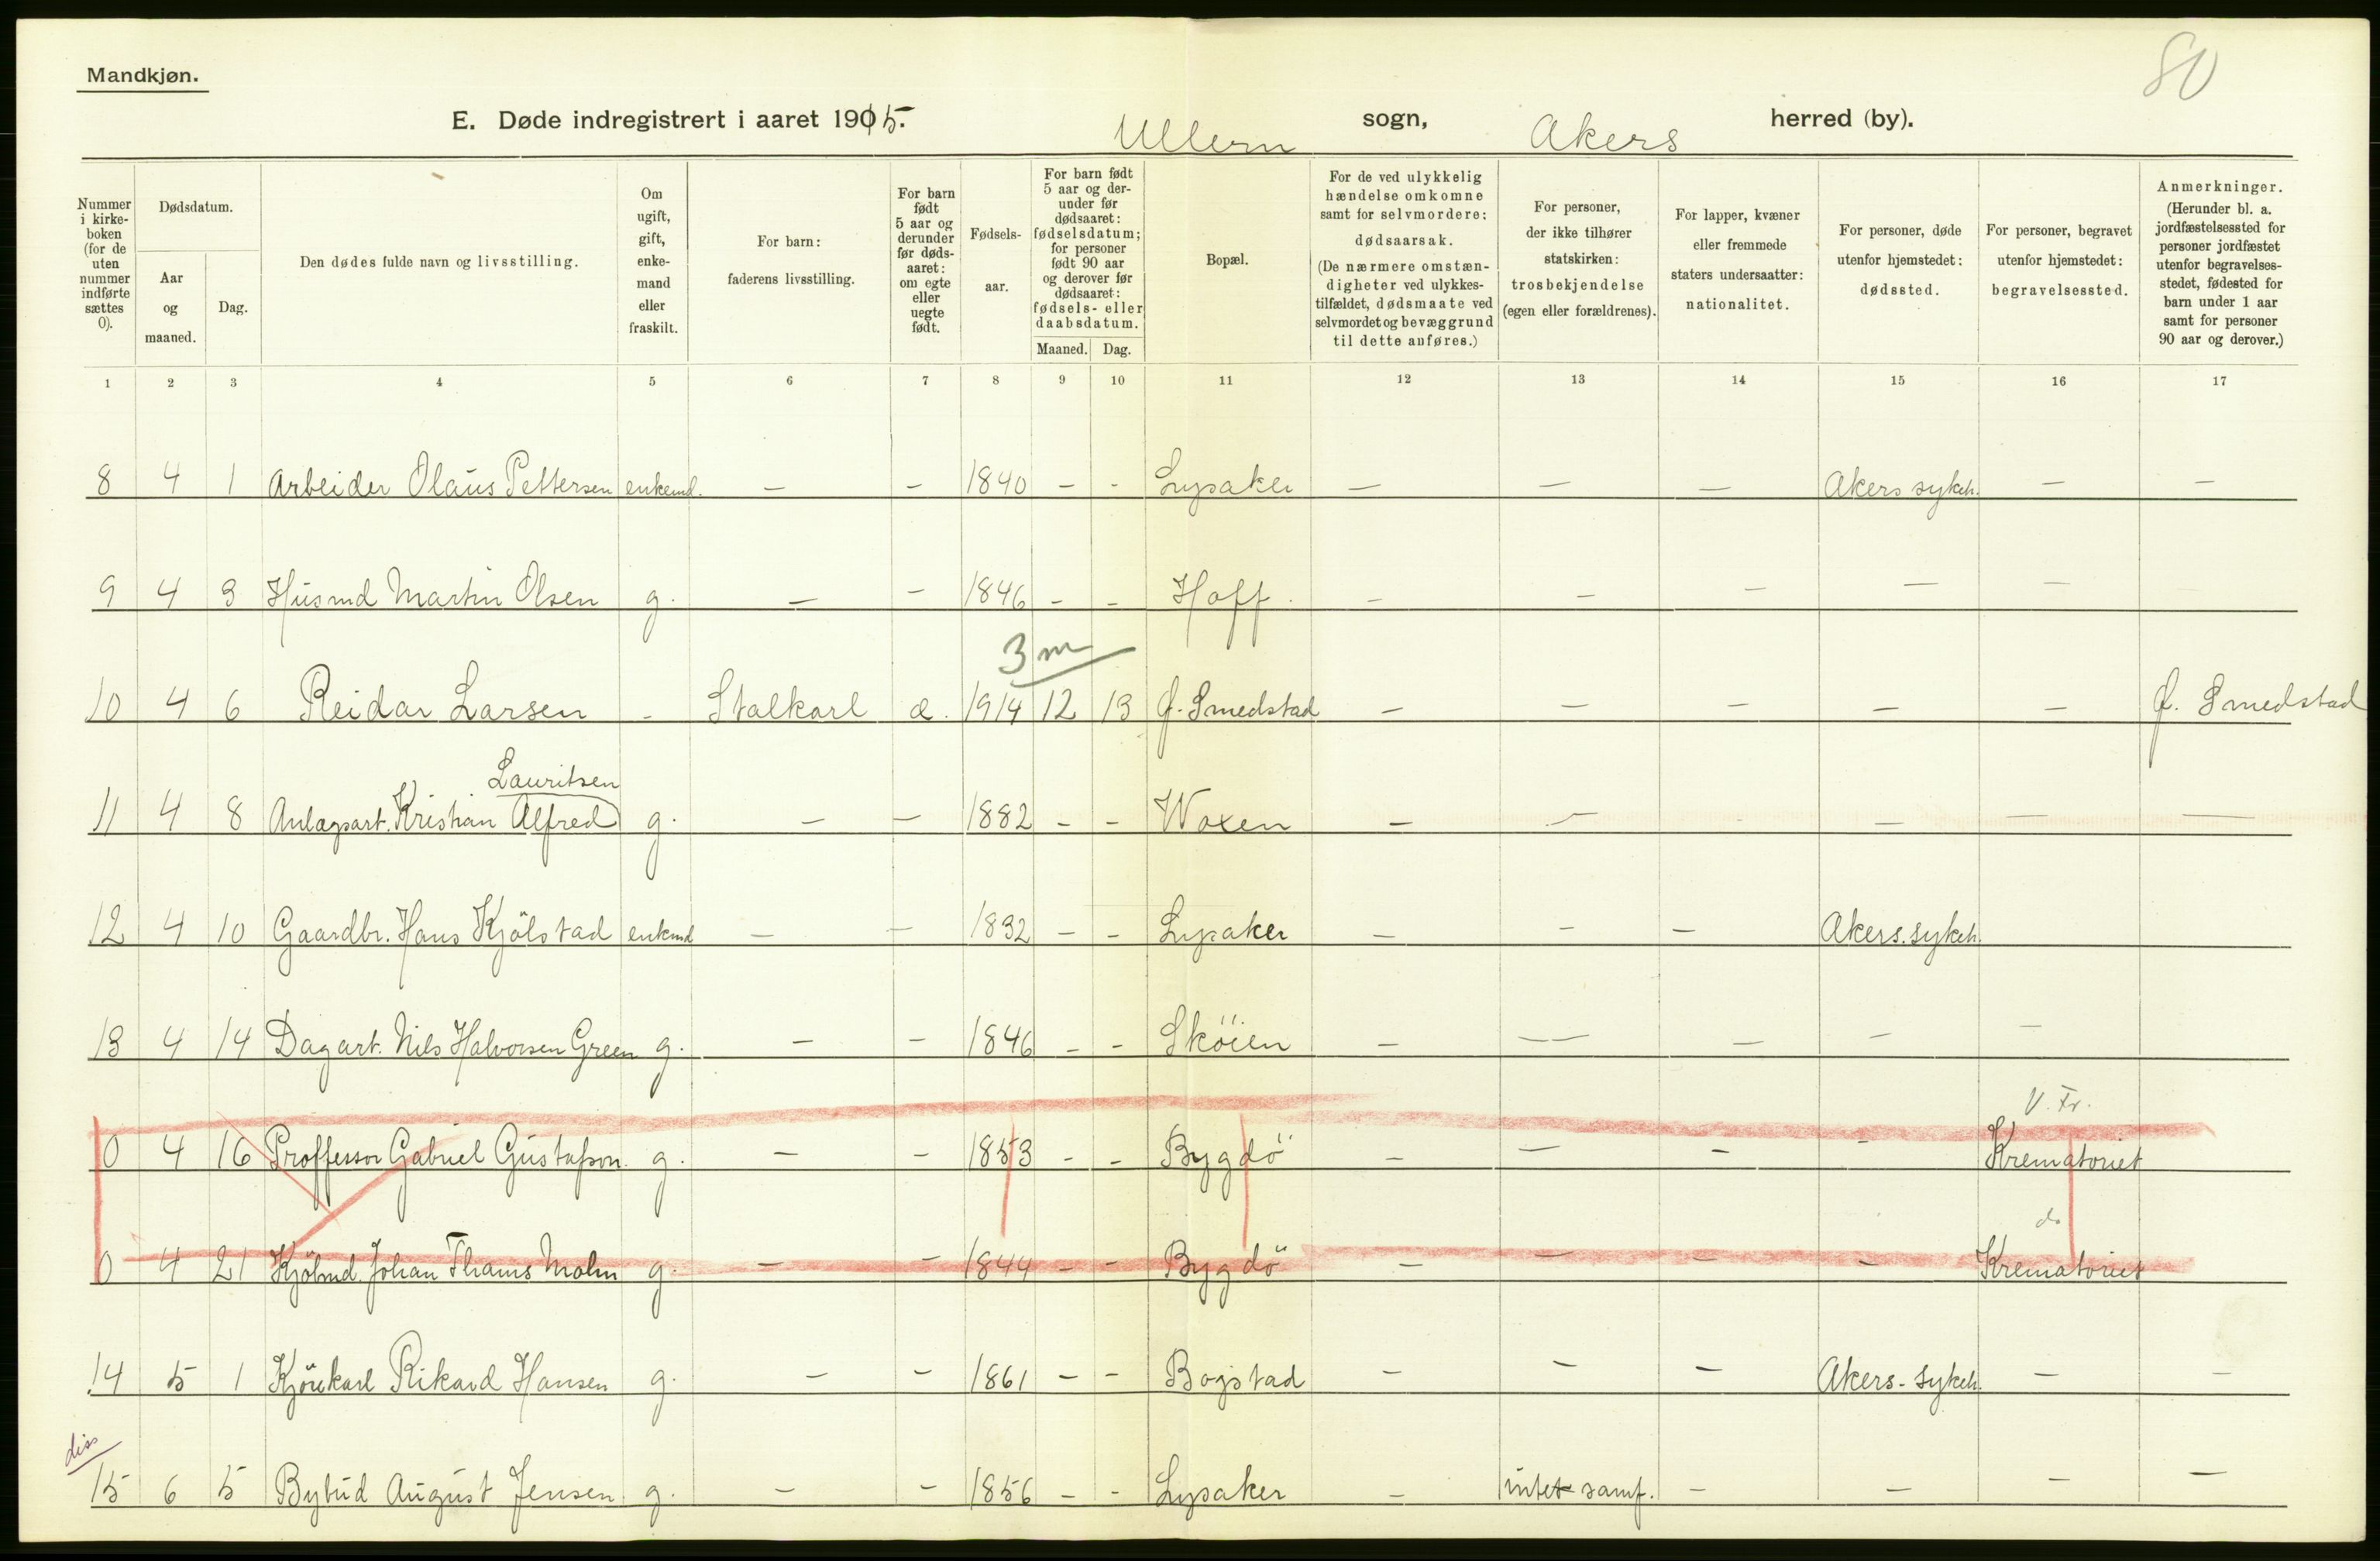 80
Mandkjøn.
E. Døde indregistrert i aaret 1915. Ullern sogn, Akers herred (by).
Nummer i kirke-boken (for de uten nummer indførte sættes 0).
Dødsdatum.
Aar og maaned.
Dag.
Den dødes fulde navn og livsstilling.
Om ugift, gift, enke-mand eller fraskilt.
For barn: faderens livsstilling.
For barn født 5 aar og derunder før døds-aaret: om egte eller uegte født.
Fødsels-aar.
For barn født 5 aar og der-under før dødsaaret: fødselsdatum; for personer født 90 aar og derover før dødsaaret: fødsels- eller daabsdatum.
Maaned. Dag.
Bopæl.
For de ved ulykkelig hændelse omkomne samt for selvmordere: dødsaarsak. (De nærmere omstæn-digheter ved ulykkes-tilfældet, dødsmaate ved selvmordet og bevæggrund til dette anføres.)
For personer, der ikke tilhører statskirken: trosbekjendelse (egen eller forældrenes).
For lapper, kvæner eller fremmede staters undersaatter: nationalitet.
For personer, døde utenfor hjemstedet: dødssted.
For personer, begravet utenfor hjemstedet: begravelsessted.
Anmerkninger. (Herunder bl. a. jordfæstelsessted for personer jordfæstet utenfor begravelses-stedet, fødested for barn under 1 aar samt for personer 90 aar og derover.)
1 2 3 4 5 6 7 8 9 10 11 12 13 14 15 16 17
8 4 1 Arbeider Olaus Pettersen enkemd. — — 1840 — - Lysaker — — — Akers sykeh. — —
9 4 3 Husmd Martin Olsen g. — — 1846 — - Hoff. — — — — —
3 m
10 4 6 Reidar Larsen - Stalkarl æ. 1914 12 13 Ø. Smedstad — — — — — Ø. Smedstad
Lauritsen
11 4 8 Anlægsarb. Kristian Alfred g. — — 1882 — - Woxen — — - — — —
12 4 10 Gaardbr. Hans Kjölstad enkmd — — 1832 — - Lysaker — — — Akers. sykeh.
13 4 14 Dagarb. Nils Halvorsen Green g. — — 1846 - - Sköien — — — — —
V. Fr.
0 4 16 Proffessor Gabriel Gustafson. g. — — 1853 - - Bygdö — — — — Krematoriet
do
0 4 21 Kjöbmd. Johan Thams Malm g. — — 1844 - - Bygdö — — — — Krematoriet
14 5 1 Kjörekarl Rikard Hansen g. — — 1861 — - Bogstad — — — Akers-sykeh. — —
diss
15 6 5 Bybud August Jensen g. — — 1856 - - Lysaker — intet samf. — — — —